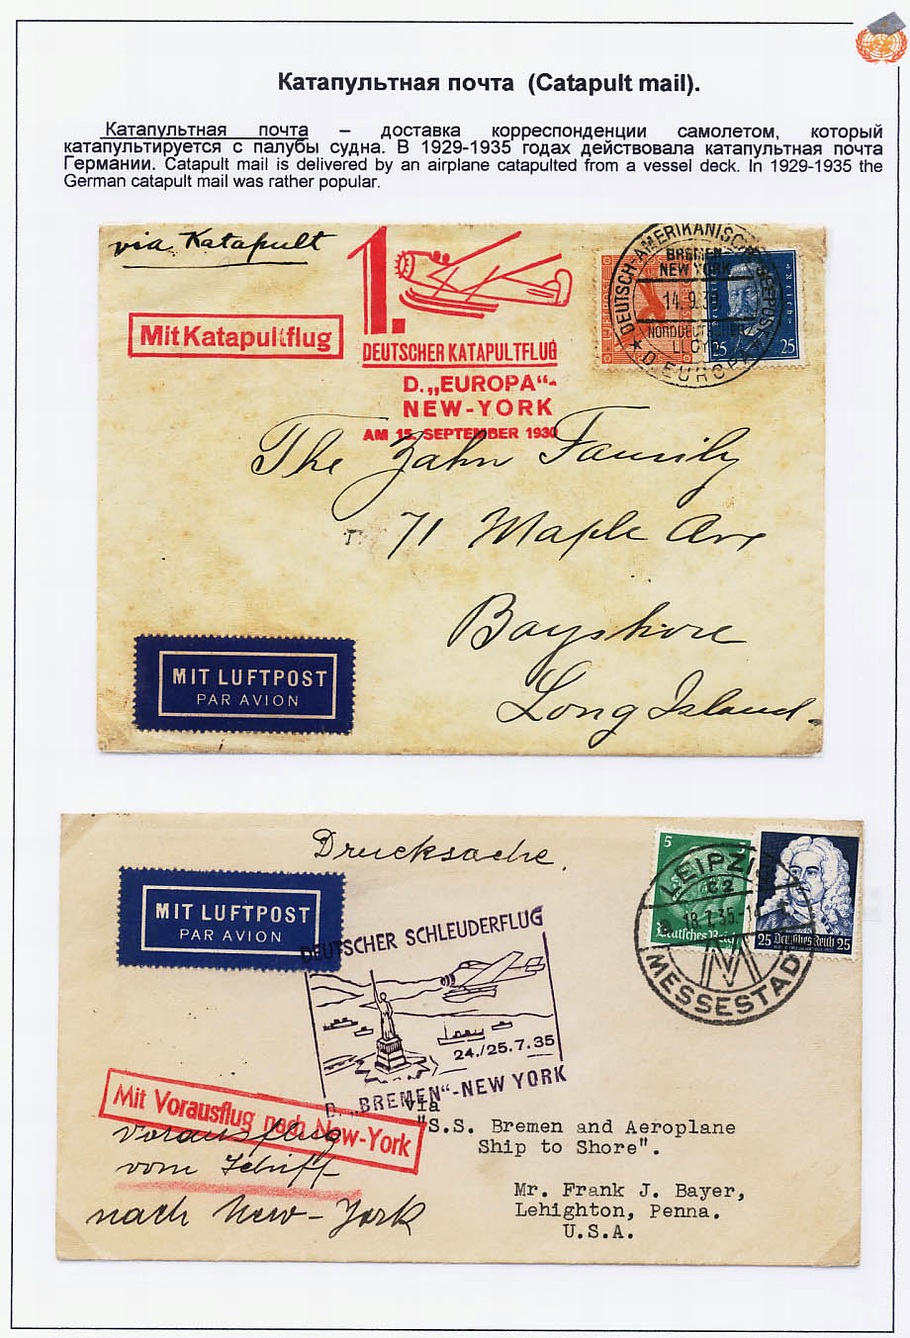 Катапультная почта (Catapult mail).
Катапультная почта – доставка корреспонденции самолетом, который
катапультируется с палубы судна. В 1929-1935 годах действовала катапультная почта
Германии. Catapult mail is delivered by an airplane catapulted from a vessel deck. In 1929-1935 the
German catapult mail was rather popular.
via Katapult
Mit Katapultflug
1.
DEUTSCHER KATAPULTFLUG
D. „EUROPA“-
NEW-YORK
AM 15. SEPTEMBER 1930
DEUTSCH-AMERIKANISCHE SEEPOST
BREMEN-
NEW YORK
14.9.3
LLOYD
D. EUROPA
25 25
The Zahn Family
71 Maple Ave
Bayshore
Long Island
MIT LUFTPOST
PAR AVION
Drucksache
MIT LUFTPOST
PAR AVION
DEUTSCHER SCHLEUDERFLUG
24./25.7.35
D. „BREMEN“-NEW YORK
5
Deutsches Reich
25 Deutsches Reich 25
LEIPZIG
C2
18.7.35.
MESSESTADT
Mit Vorausflug nach New-York
Vorausflug
vom Schiff
nach New-York
via
"S.S. Bremen and Aeroplane
Ship to Shore".
Mr. Frank J. Bayer,
Lehighton, Penna.
U.S.A.